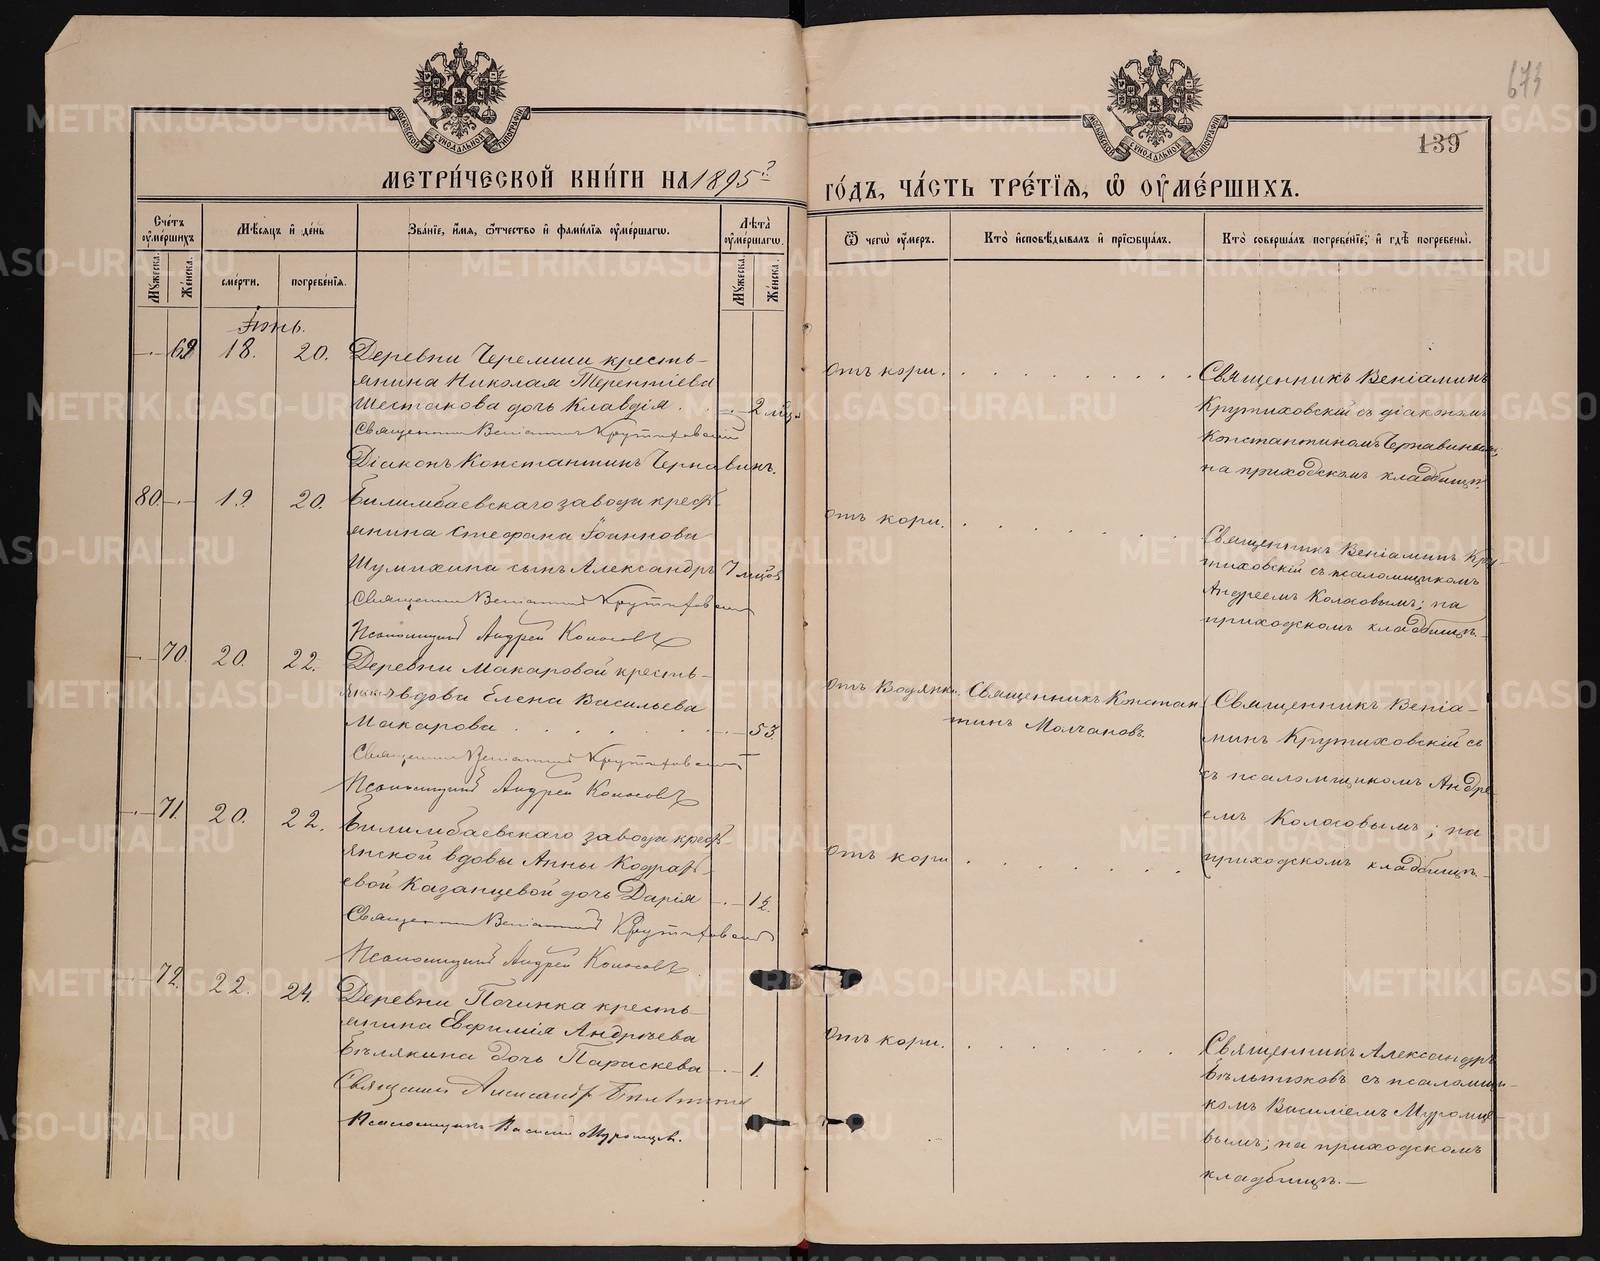 673
139
МОСКОВСКОЙ СѴНОДАЛЬНОЙ ТИПОГРАФІИ
МОСКОВСКОЙ СѴНОДАЛЬНОЙ ТИПОГРАФІИ
МЕТРИ́ЧЕСКОЙ КНИ́ГИ НА 1895 г.
ГО́ДЪ, ЧА́СТЬ ТРЕ́ТІѦ, Ѡ ОУМЕ́РШИХЪ.
Сче́тъ оуме́ршихъ
Мѣ́сяцъ и де́нь
Зва́ніе, и́мя, ѻ́тчество и фами́лія оуме́ршагѡ.
Лѣта̀ оуме́ршагѡ.
Ѿ чегѡ̀ оу́меръ.
Кто̀ и҆сповѣ́дывалъ и҆ прїѡбща́лъ.
Кто̀ соверша́лъ погребе́нїе, и҆ гдѣ̀ погребены̀.
Му́жеска.
Же́нска.
сме́рти.
погребе́нїя.
Му́жеска.
Же́нска.
Іюнь.
69 18. 20. Деревни Черемши кресть-
янина Николая Терентіева
Шестакова дочь Клавдія . . 2 мѣс.
Священникъ Веніаминъ Крутиховскій
Діаконъ Константинъ Чернавинъ.
отъ кори.
Священникъ Веніаминъ
Крутиховскій съ діакономъ
Константиномъ Чернавинымъ;
на приходскомъ кладбищѣ.
80. 19. 20. Билимбаевскаго завода крестъ-
янина Стефана Іоаннова
Шумихина сынъ Александръ 7 мѣсъ
Священникъ Веніаминъ Крутиховскій
Псаломщикъ Андрей Колосовъ
отъ кори.
Священникъ Веніаминъ Кру-
тиховскій съ псаломщикомъ
Андреемъ Колосовымъ; на
приходскомъ кладбищѣ.
70. 20. 22. Деревни Макаровой кресть-
янская вдова Елена Васильева
Макарова . . . 53.
Священникъ Веніаминъ Крутиховскій
Псаломщикъ Андрей Колосовъ
отъ водянки.
Священникъ Констан
тинъ Молчановъ.
Священникъ Веніа-
минъ Крутиховскій съ
съ псаломщикомъ Андре-
емъ Колосовымъ; на
приходскомъ кладбищѣ.
71. 20. 22. Билимбаевскаго завода крестъ-
янской вдовы Анны Кодратъ-
евой Казанцевой дочь Дарія 12.
Священникъ Веніаминъ Крутиховскій
Псаломщикъ Андрей Колосовъ
отъ кори
72. 22. 24. Деревни Починка кресть-
янина Евфимія Андреева
Бѣлякина дочь Параскева 1.
Священникъ Александръ
Псаломщикъ Василій Муромцевъ.
отъ кори.
Священникъ Александръ
съ псаломщи-
комъ Василіемъ Муромце-
вымъ; на приходскомъ
кладбищѣ.
METRIKI.GASO-URAL.RU